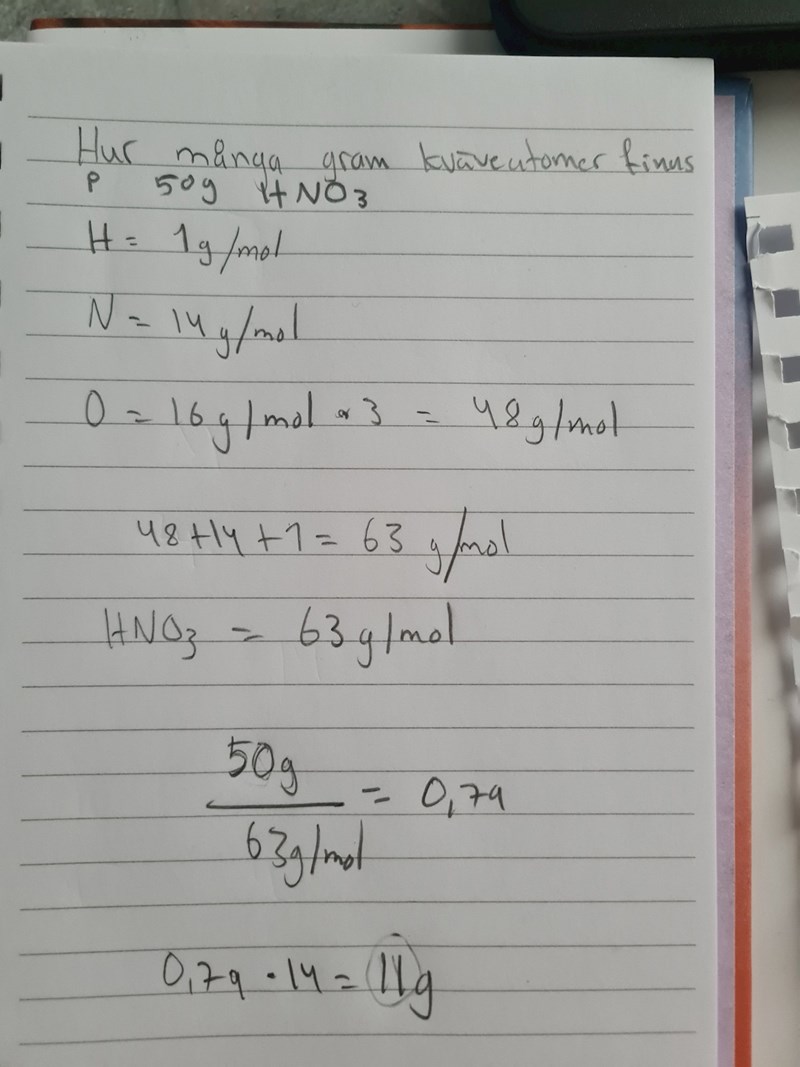 Hur många gram kväveatomer finns
P 50g HNO3
H = 1g/mol
N = 14g/mol
O = 16g/mol • 3 = 48g/mol
48+14+1= 63 g/mol
HNO3 = 63g/mol
50g
63g/mol
= 0,79
0,79 • 14 = 11g